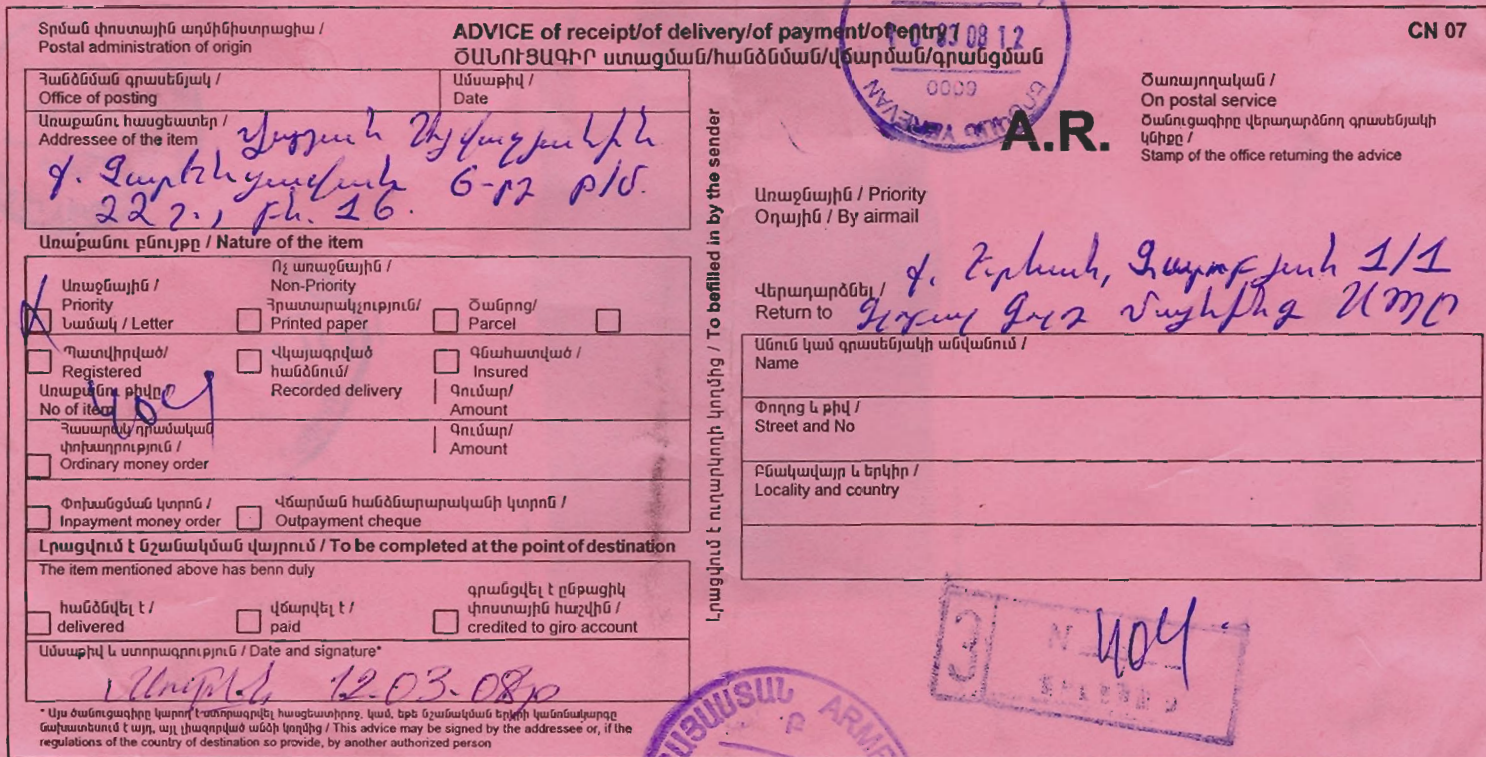 Տրման փոստային ադմինիստրացիա /
Postal administration of origin
ADVICE of receipt/of delivery/of payment/of entry /
ԾԱՆՈՒՑԱԳԻՐ ստացման/հանձնման/վճարման/գրանցման
CN 07
Հանձնման գրասենյակ /
Office of posting
Ամսաթիվ /
Date
Առաքանու հասցեատեր /
Addressee of the item
6-րդ թ/մ.
22 շ., բն. 16.
Առաքանու բնույթը / Nature of the item
Առաջնային /
Priority
Նամակ / Letter
Ոչ առաջնային /
Non-Priority
Հրատարակչություն/
Printed paper
Ծանրոց/
Parcel
Պատվիրված/
Registered
Վկայագրված
հանձնում/
Recorded delivery
Գնահատված /
Insured
Առաքանու թիվը
No of item
404
Գումար/
Amount
Հասարակ դրամական
փոխադրություն /
Ordinary money order
Գումար/
Amount
Փոխանցման կտրոն /
Inpayment money order
Վճարման հանձնարարականի կտրոն /
Outpayment cheque
Լրացվում է նշանակման վայրում / To be completed at the point of destination
The item mentioned above has benn duly
հանձնվել է /
delivered
վճարվել է /
paid
գրանցվել է ընթացիկ
փոստային հաշվին /
credited to giro account
Ամսաթիվ և ստորագրություն / Date and signature*
12.03.08թ
* Այս ծանուցագիրը կարող է ստորագրվել հասցեատիրոջ, կամ, եթե նշանակման երկրի կանոնակարգը
նախատեսում է այդ, այլ լիազորված անձի կողմից / This advice may be signed by the addressee or, if the
regulations of the country of destination so provide, by another authorized person
Լրացվում է ուղարկողի կողմից / To befilled in by the sender
08 12
0009
YEREVAN
A.R.
Ծառայողական /
On postal service
Ծանուցագիրը վերադարձնող գրասենյակի
կնիքը /
Stamp of the office returning the advice
Առաջնային / Priority
Օդային / By airmail
Վերադարձնել /
Return to
ք. Երևան, 1/1
Անուն կամ գրասենյակի անվանում /
Name
Փողոց և թիվ /
Street and No
Բնակավայր և երկիր /
Locality and country
Յ
N 404
ՀԱՅԱՍՏԱՆ